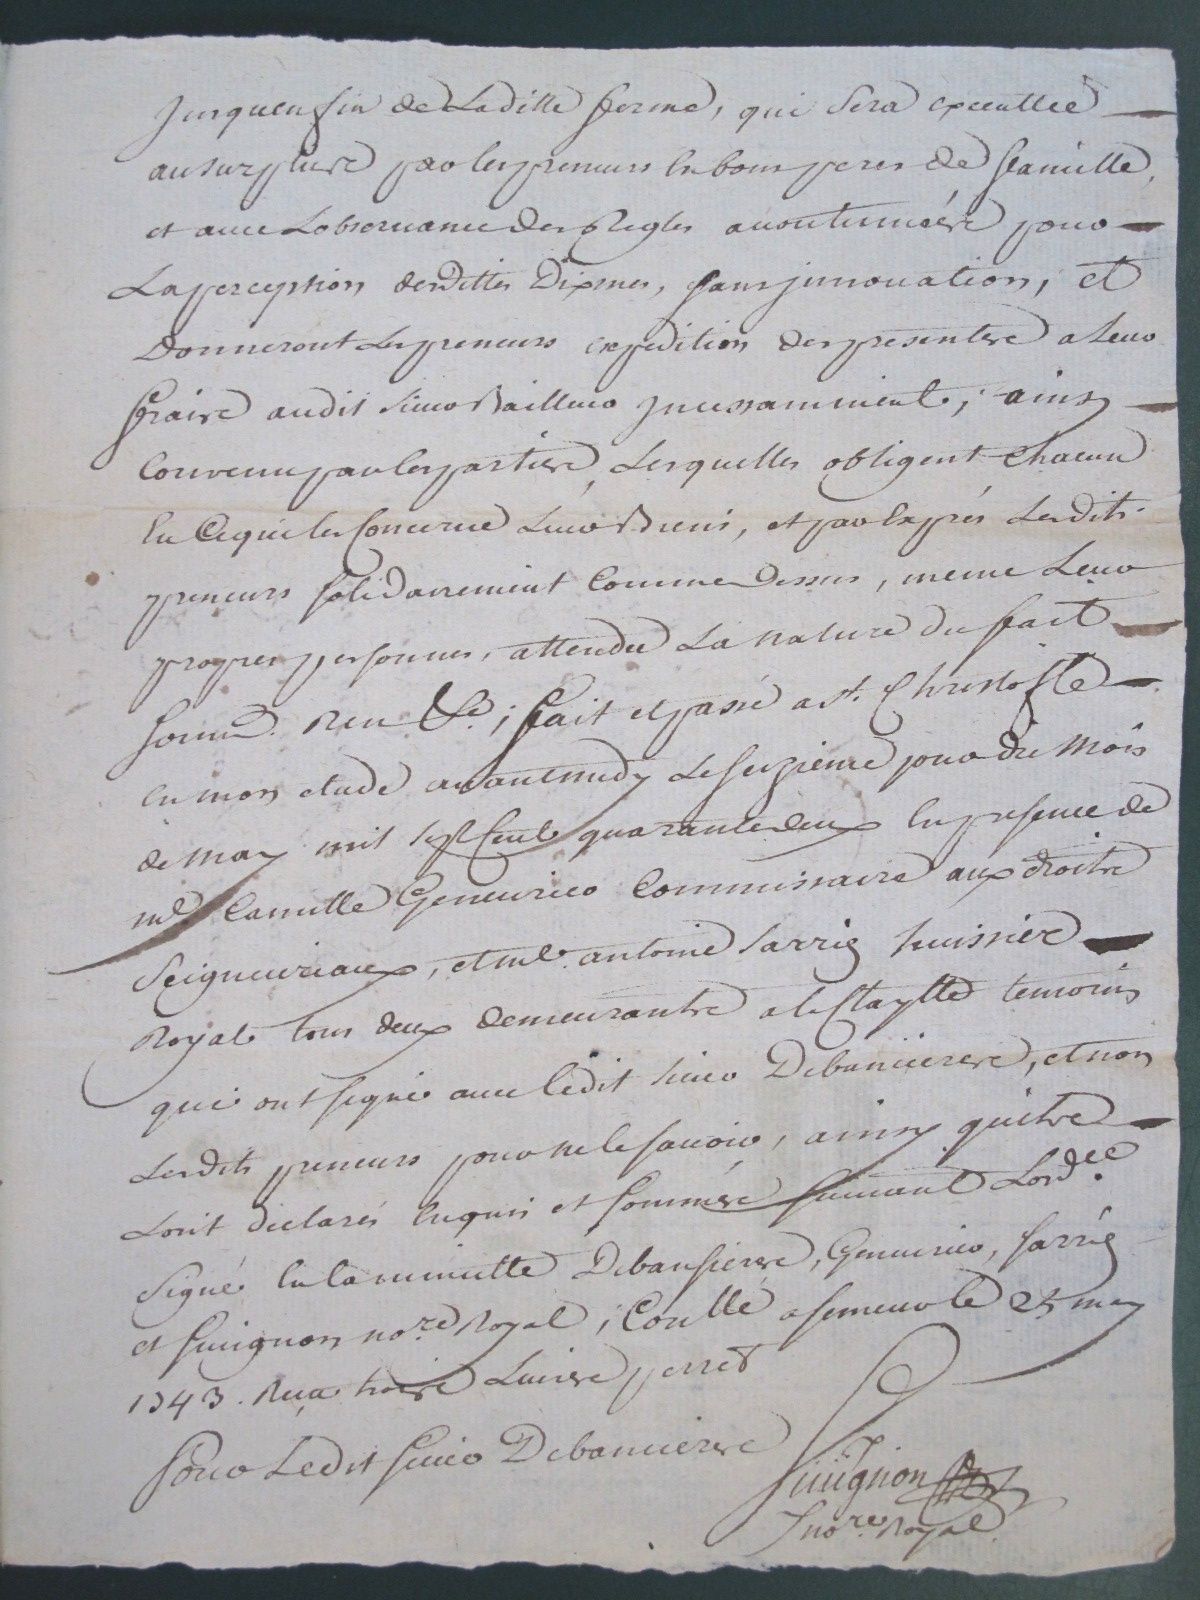 Jusquen fin de Laditte ferme, qui sera executtee
au surplus par les preneurs en bons peres de famille,
et avec Lobservance des Regles accoutumées pour
La perception desdittes Dixmes, sans jnnovation, et
Donneront Les preneurs expedition des presentes a Leur
fraix audit sieur Bailleur jncessamment; ainsy
Convenu par les parties, Lesquelles obligent chacun
En Ce qui les Concerne Leurs Biens, et par Exprés Lesdits
preneurs solidairement Comme Dessus, meme Leur
propres personnes, attendu La nature du fait
soum. Ren. &c.; fait et passé a st. Christofle
en mon etude avant midy Le seizieme jour du Mois
de may mil sept Cent quarante deux En presence de
me. Camille Commissaire aux droits
Seigneuriaux, et me. antoine Sarrig huissier
Royal tous deux demeurants a temoins
qui ont signé avec ledit sieur Debanieres, et non
Lesdits preneurs pour ne le savoir, ainsy quils
Lont declarés Enquis et sommés suivant Lordce.
Signé En la minutte Debansieres, Sarrig
et no.re Royal; Conllé a semeur le 25 may
1743. Reçu trois Livres
Pour Ledit sieur Debanieres
no.re Royal